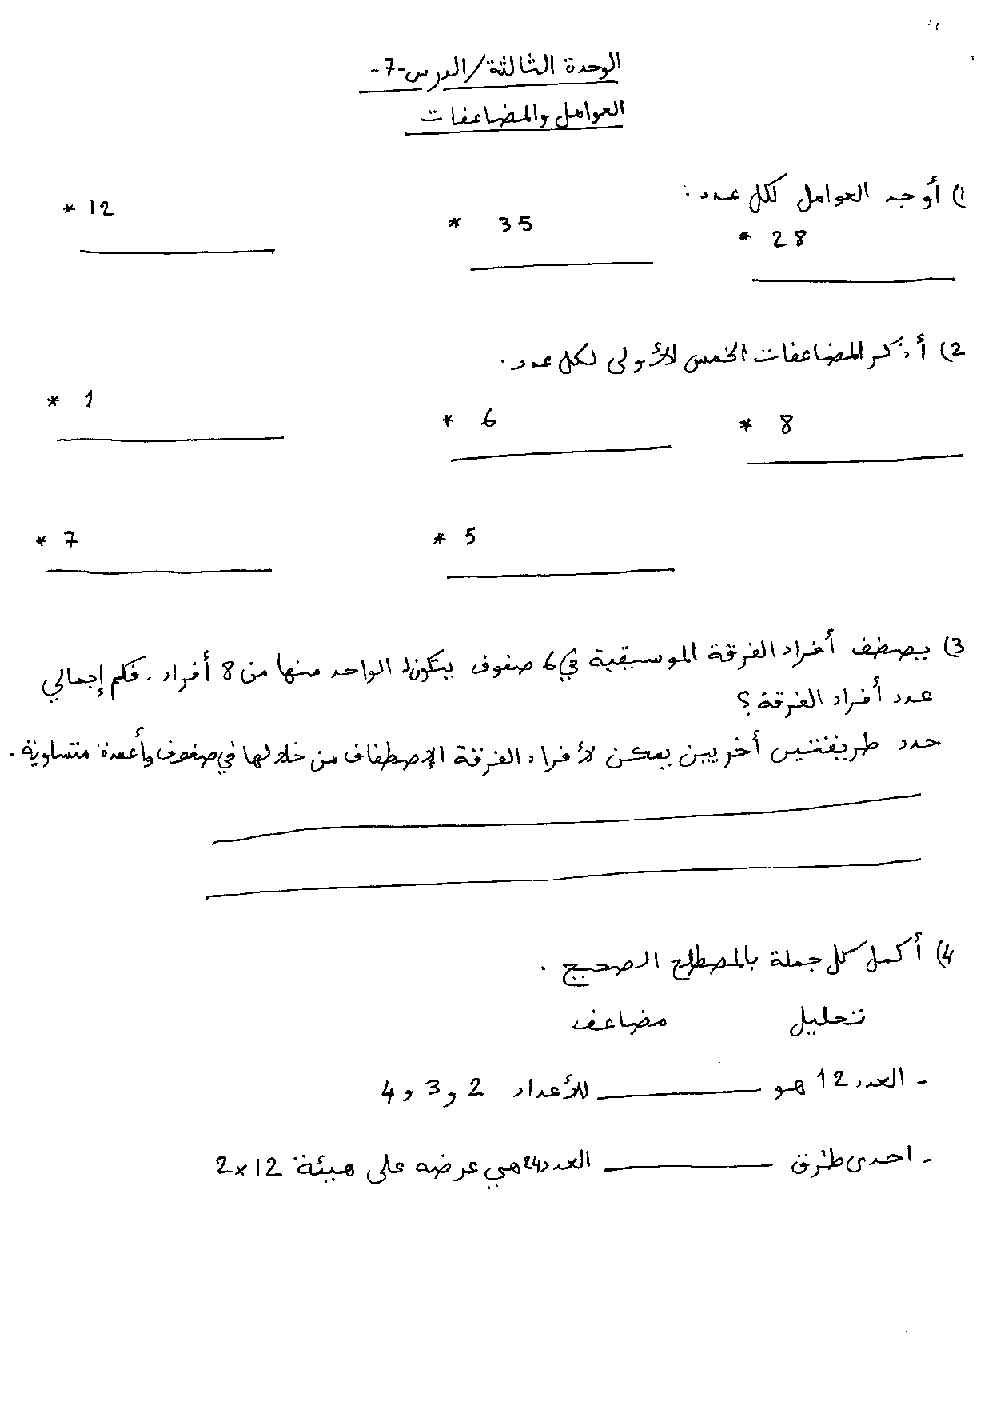 الوحدة الثالثة/الدرس -7-
العوامل والمضاعفات
1) أوجد العوامل لكل عدد :
* 28 * 35 * 12
2) أذكر المضاعفات الخمس الأولى لكل عدد .
* 8 * 6 * 1
* 5 * 7
3) يصطف أفراد الفرقة الموسيقية في 6 صفوف يتكون الواحد منها من 8 أفراد . فكم إجمالي
عدد أفراد الفرقة ؟
حدد طريقتين أخريين يمكن لأفراد الفرقة الاصطفاف من خلالها في صفوف وأعمدة متساوية .
4) أكمل كل جملة بالمصطلح الصحيح .
تحليل مضاعف
- العدد 12 هو ــــــــ للأعداد 2 و 3 و 4
- احدى طرق ــــــــ العدد 24 هي عرضه على هيئة 2x12